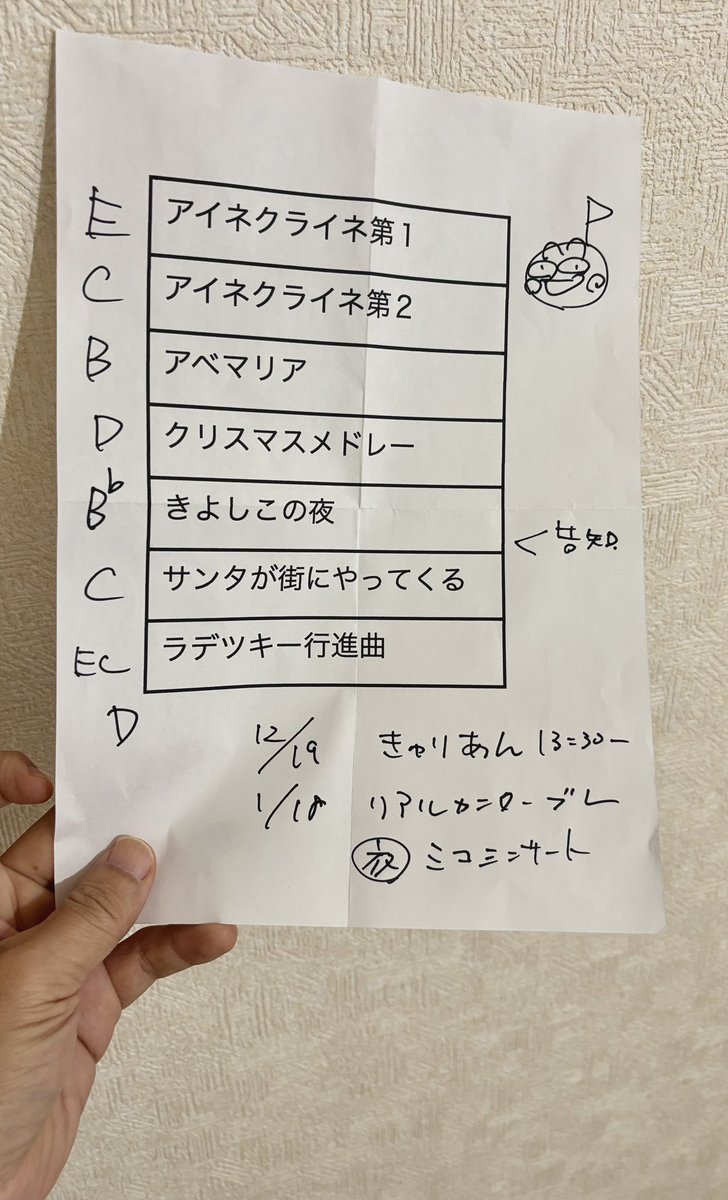 E アイネクライネ第1
C アイネクライネ第2
B アベマリア
D クリスマスメドレー
B♭ きよしこの夜
<告知
C サンタが街にやってくる
EC ラデツキー行進曲
D
12/19 きゅりあん 13:30ー
1/18 リアルカンターブレ
夜 ミニコンサート